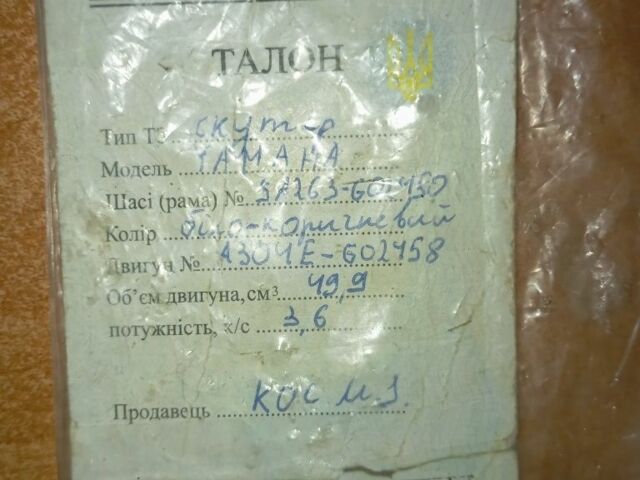 ТАЛОН
Тип ТЗ скутер
Модель ЯМАНА
Шасі (рама) №
Колір біло-коричневий
Двигун № A304E-602458
Об'єм двигуна, см³ 49,9
потужність, к/с 3,6
Продавець